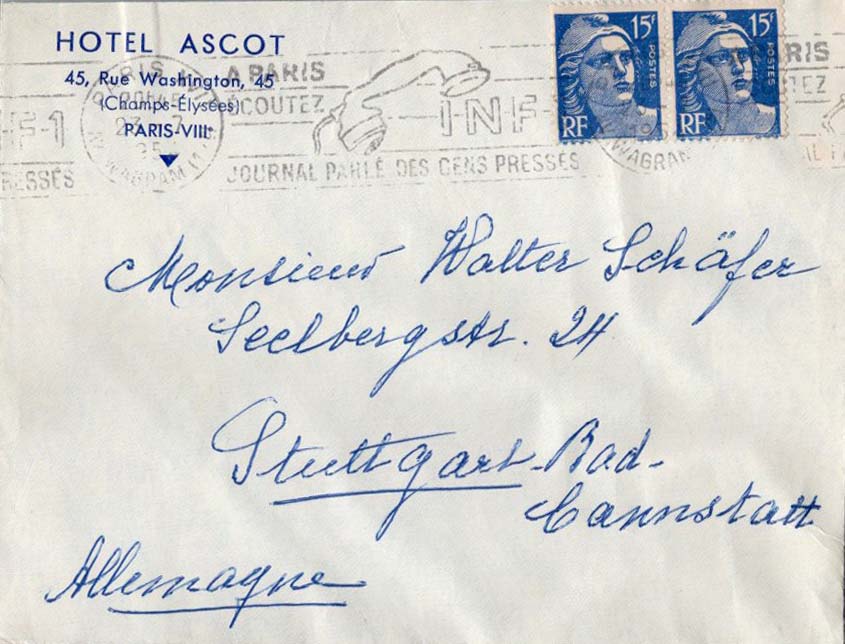 HOTEL ASCOT
45, Rue Washington, 45
(Champs-Élysées)
PARIS-VIIIᵉ
A PARIS
ECOUTEZ
INF-1
JOURNAL PARLÉ DES GENS PRESSÉS
PARIS
WAGRAM
15F
POSTES
RF
15F
POSTES
RF
WAGRAM
Monsieur Walter Schäfer
Seelbergstr. 24
Stuttgart-Bad-
Cannstatt
Allemagne